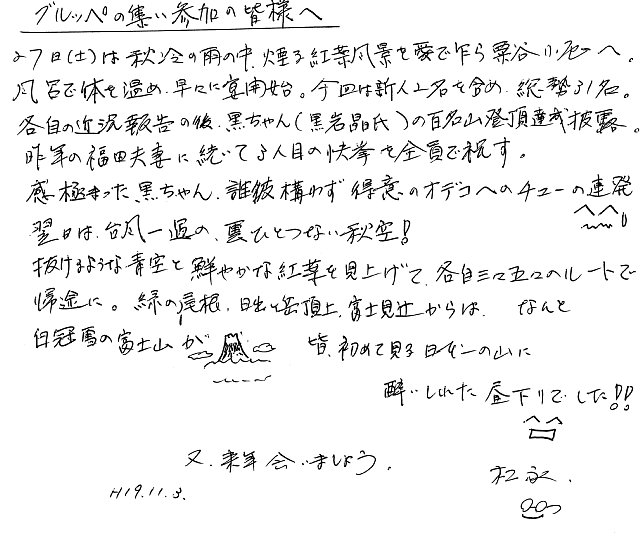 グルッペの集い参加の皆様へ
27日(土)は秋冷の雨の中、煙る紅葉風景を愛で乍ら粟谷小屋へ。
風呂で体を温め、早々に宴開始。今回は新人2名を含め、総勢31名。
各自の近況報告の後、黒ちゃん(黒岩晶氏)の百名山登頂達成披露。
昨年の福田夫妻に続いて3人目の快挙を全員で祝す。
感極まった黒ちゃん、誰彼構わず得意のオデコへのチューの連発
翌日は、台風一過の、雲ひとつない秋空!
抜けるような青空と鮮やかな紅葉を見上げて、各自三々五々のルートで
帰途に。緑の尾根、日出ヶ岳頂上、富士見辻からは、なんと
白冠雪の富士山が
皆、初めて見る日本一の山に
酔いしれた昼下りでした!!
又、来年会いましょう。
H19.11.3.
松永.